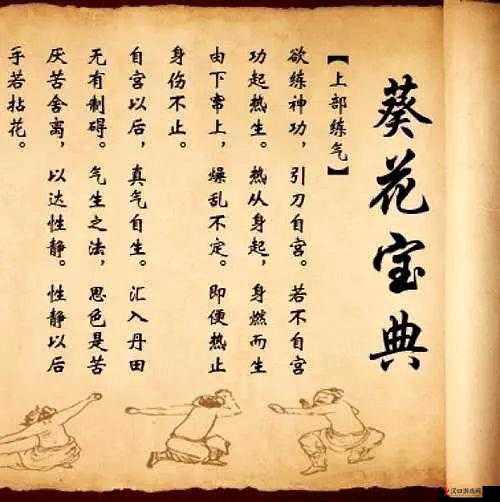 葵花宝典
【上部练气】
欲练神功，引刀自宫。若不自宫
功起热生。热从身起，身燃而生
由下窜上，燥乱不定。即便热止
身伤不止。
自宫以后，真气自生。汇入丹田
无有制碍。气生之法，思色是苦
厌苦舍离，以达性静。性静以后
手若拈花。
汉口游戏网